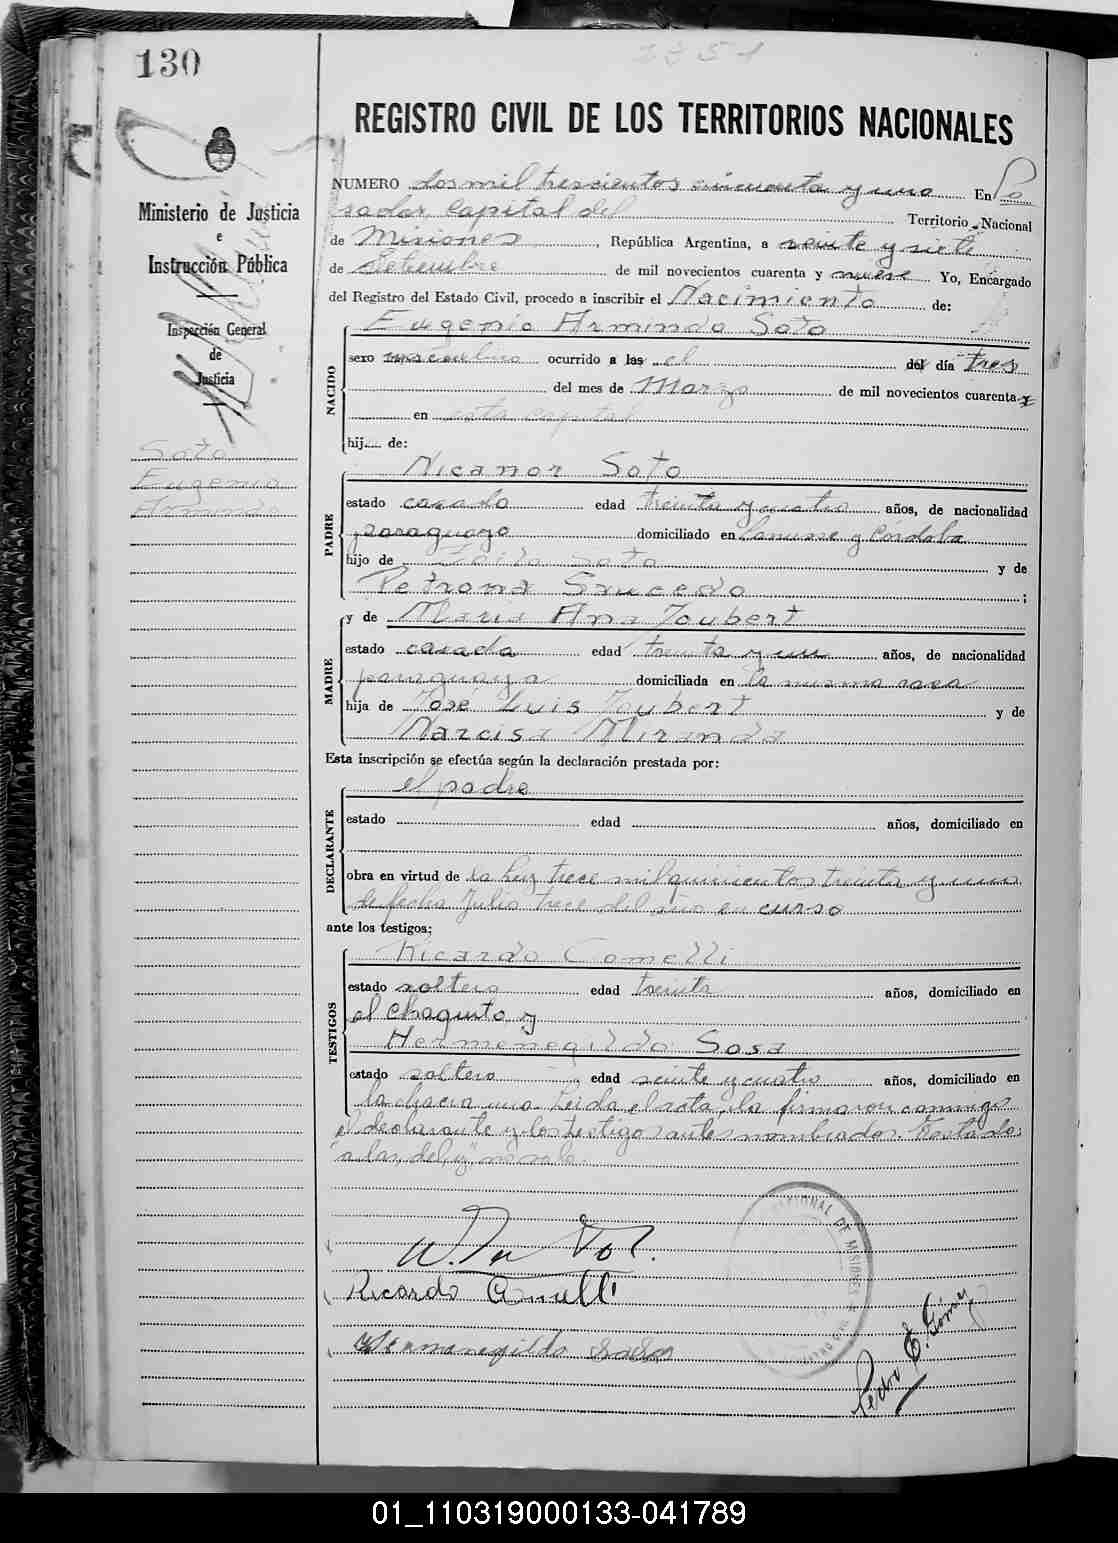 130
2351
REGISTRO CIVIL DE LOS TERRITORIOS NACIONALES
Ministerio de Justicia
e
Instrucción Pública
Inspección General
de
Justicia
Soto
Eugenio
Armindo
NUMERO dos mil trescientos cincuenta y uno En Po
sadas Capital del Territorio Nacional
de Misiones, República Argentina, a veinte y siete
de Setiembre de mil novecientos cuarenta y nueve Yo, Encargado
del Registro del Estado Civil, procedo a inscribir el Nacimiento de:
NACIDO
Eugenio Armindo Soto
sexo masculino ocurrido a las el del día tres
del mes de Marzo de mil novecientos cuarenta y
en esta capital
hij.... de:
PADRE
Nicanor Soto
estado casado edad treinta y cuatro años, de nacionalidad
paraguayo domiciliado en Lanusse y Córdoba
hijo de Soto y de
Petrona Saucedo;
MADRE
y de Maria Ana Joubert
estado casada edad treinta y un años, de nacionalidad
paraguaya domiciliada en la misma casa
hija de José Luis Joubert y de
Narcisa Miranda
Esta inscripción se efectúa según la declaración prestada por:
DECLARANTE
el padre
estado edad años, domiciliado en
obra en virtud de la ley trece mil quinientos treinta y uno
de fecha Julio trece del año en curso
ante los testigos;
TESTIGOS
Ricardo Comelli
estado soltero edad treinta años, domiciliado en
el Chaquito y
Hermenegildo Sosa
estado soltero edad veinte y cuatro años, domiciliado en
la chacra una Leida el acta, la firmaron conmigo
el declarante y los testigos antes nombrados. Testado:
"a las, del, y" no vale.
Ricardo Comelli
Hermenegildo Sosa
Pedro E. Gómez
01_110319000133-041789